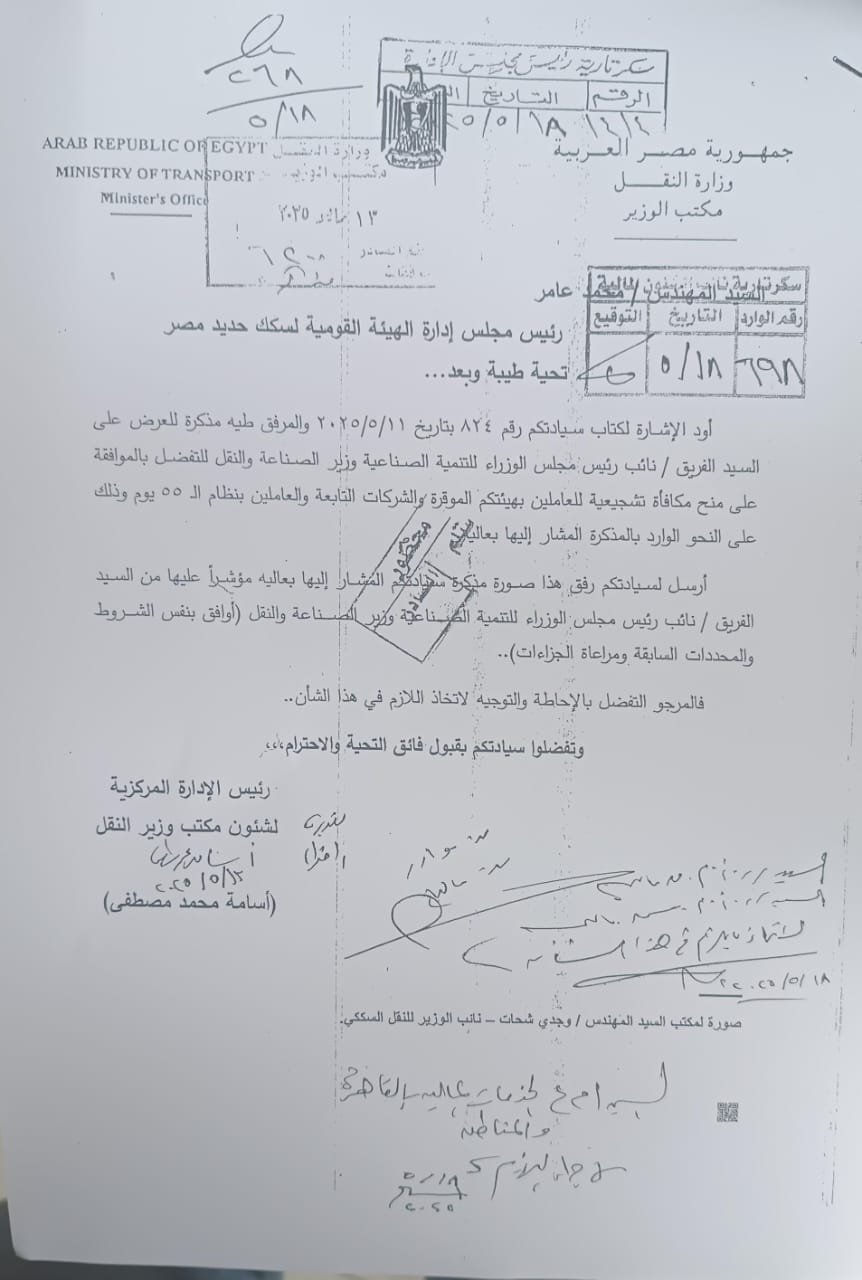 سكرتارية رئيس مجلس الإدارة
الرقم
التاريخ
١٤١٤
٥/١٨
٢٦٨
٥/١٨
ARAB REPUBLIC OF EGYPT
MINISTRY OF TRANSPORT
Minister's Office
جمهورية مصر العربية
وزارة النقل
مكتب الوزير
وزارة النقل
١٣ مايو ٢٠٢٥
سكرتارية نائب شئون مالية
رقم الوارد
التاريخ
التوقيع
٦٩٨
٥/١٨
السيد المهندس / محمد عامر
رئيس مجلس إدارة الهيئة القومية لسكك حديد مصر
تحية طيبة وبعد...
أود الإشارة لكتاب سيادتكم رقم ٨٢٤ بتاريخ ٢٠٢٥/٥/١١ والمرفق طيه مذكرة للعرض على
السيد الفريق / نائب رئيس مجلس الوزراء للتنمية الصناعية وزير الصناعة والنقل للتفضل بالموافقة
على منح مكافأة تشجيعية للعاملين بهيئتكم الموقرة والشركات التابعة والعاملين بنظام الـ ٥٥ يوم وذلك
على النحو الوارد بالمذكرة المشار إليها بعاليه.
أرسل لسيادتكم رفق هذا صورة مذكرة سيادتكم المشار إليها بعاليه مؤشراً عليها من السيد
الفريق / نائب رئيس مجلس الوزراء للتنمية الصناعية وزير الصناعة والنقل (أوافق بنفس الشروط
والمحددات السابقة ومراعاة الجزاءات)..
فالمرجو التفضل بالإحاطة والتوجيه لاتخاذ اللازم في هذا الشأن..
وتفضلوا سيادتكم بقبول فائق التحية والاحترام،،،
رئيس الإدارة المركزية
لشئون مكتب وزير النقل
٢٠٢٥/٥/١٣
(أسامة محمد مصطفى)
لاتخاذ ما يلزم في هذا الشأن
٢٠٢٥/٥/١٨
صورة لمكتب السيد المهندس / وجدي شحات – نائب الوزير للنقل السككي.
والمناطق
٥/١٨
٢٠٢٥